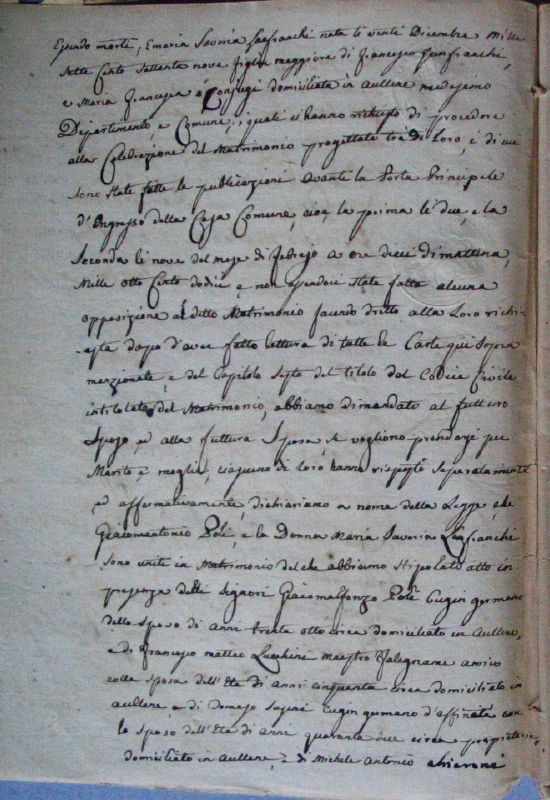 Essendo morto, e Maria Saveria Lanfranchi nata li venti Dicembre Mille
Sette Cento Settanta nove figlia maggiore di Francesco Lanfranchi,
e Maria Francesca Conjugi domiciliata in Aullene medesemo
Dipartimento, e Comune, i quali ci hanno richiesto di procedere
alla Celebrazione del Matrimonio progettato tra di Loro, e di cui
sono state fatte le publicazioni avante la Porta Principale
d'Ingresso della Casa Comune, cioe, la prima li due, e la
Seconda li nove del mese di febrajo a ore dieci di mattina,
Mille otto Cento dodici, e non essendoci state fatta alcuna
opposizione al ditto Matrimonio facendo dretto alla Loro richi-
esta dopo d'aver fatto lettura di tutte le Carte qui sopra
menzionate, e del Capitolo Sesto del titolo del Codice Civile
intitolato del Matrimonio, abbiamo dimandato al futturo
Sposo, ed alla futtura Sposa se vogliono prendarsi per
Marito, e moglie, ciascuno di loro hanno risposto separatamente
ed affermativamente, dichiariamo a nome della Legge, che
Giacomantonio Poli, e la Donna Maria Saveria Lanfranchi
sono uniti in Matrimonio del che abbiamo stipolato atto in
presenza delli Signori Giacomalfonzo Poli Cugin germano
dello sposo di anni trenta otto circa domiciliato in Aullene,
e di Francesco Matteo Lucchini Maestro falegname amico
colla sposa dell'Età di anni cinquanta circa domiciliato in
Aullene, e di Cugin germano d'affinità con
lo sposo dell'Età di anni quaranta due circa proprietario,
domiciliato in Aullene, e di Michele Antonio Chiaroni